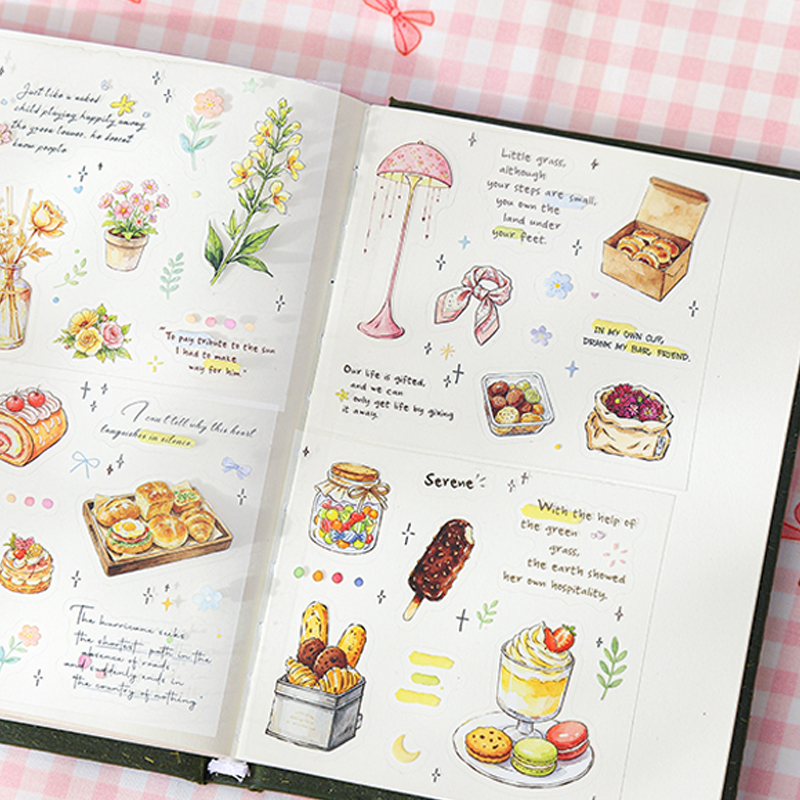 Just like a naked
child playing happily among
the green leaves, he doesn't
know people.
"To pay tribute to the sun
I had to make
way for him."
I can't tell why this heart
languishes in silence.
The hurricane seeks
the shortest path in the
absence of road,
and suddenly ends in
the country of nothing"
Little grass,
although
your steps are small,
you own the
land under
your feet.
IN MY OWN CUP,
DRANK MY BAR, FRIEND.
Our life is gifted,
and we can
only get life by giving
it away.
Serene
With the help of
the green
grass,
the earth showed
her own hospitality.